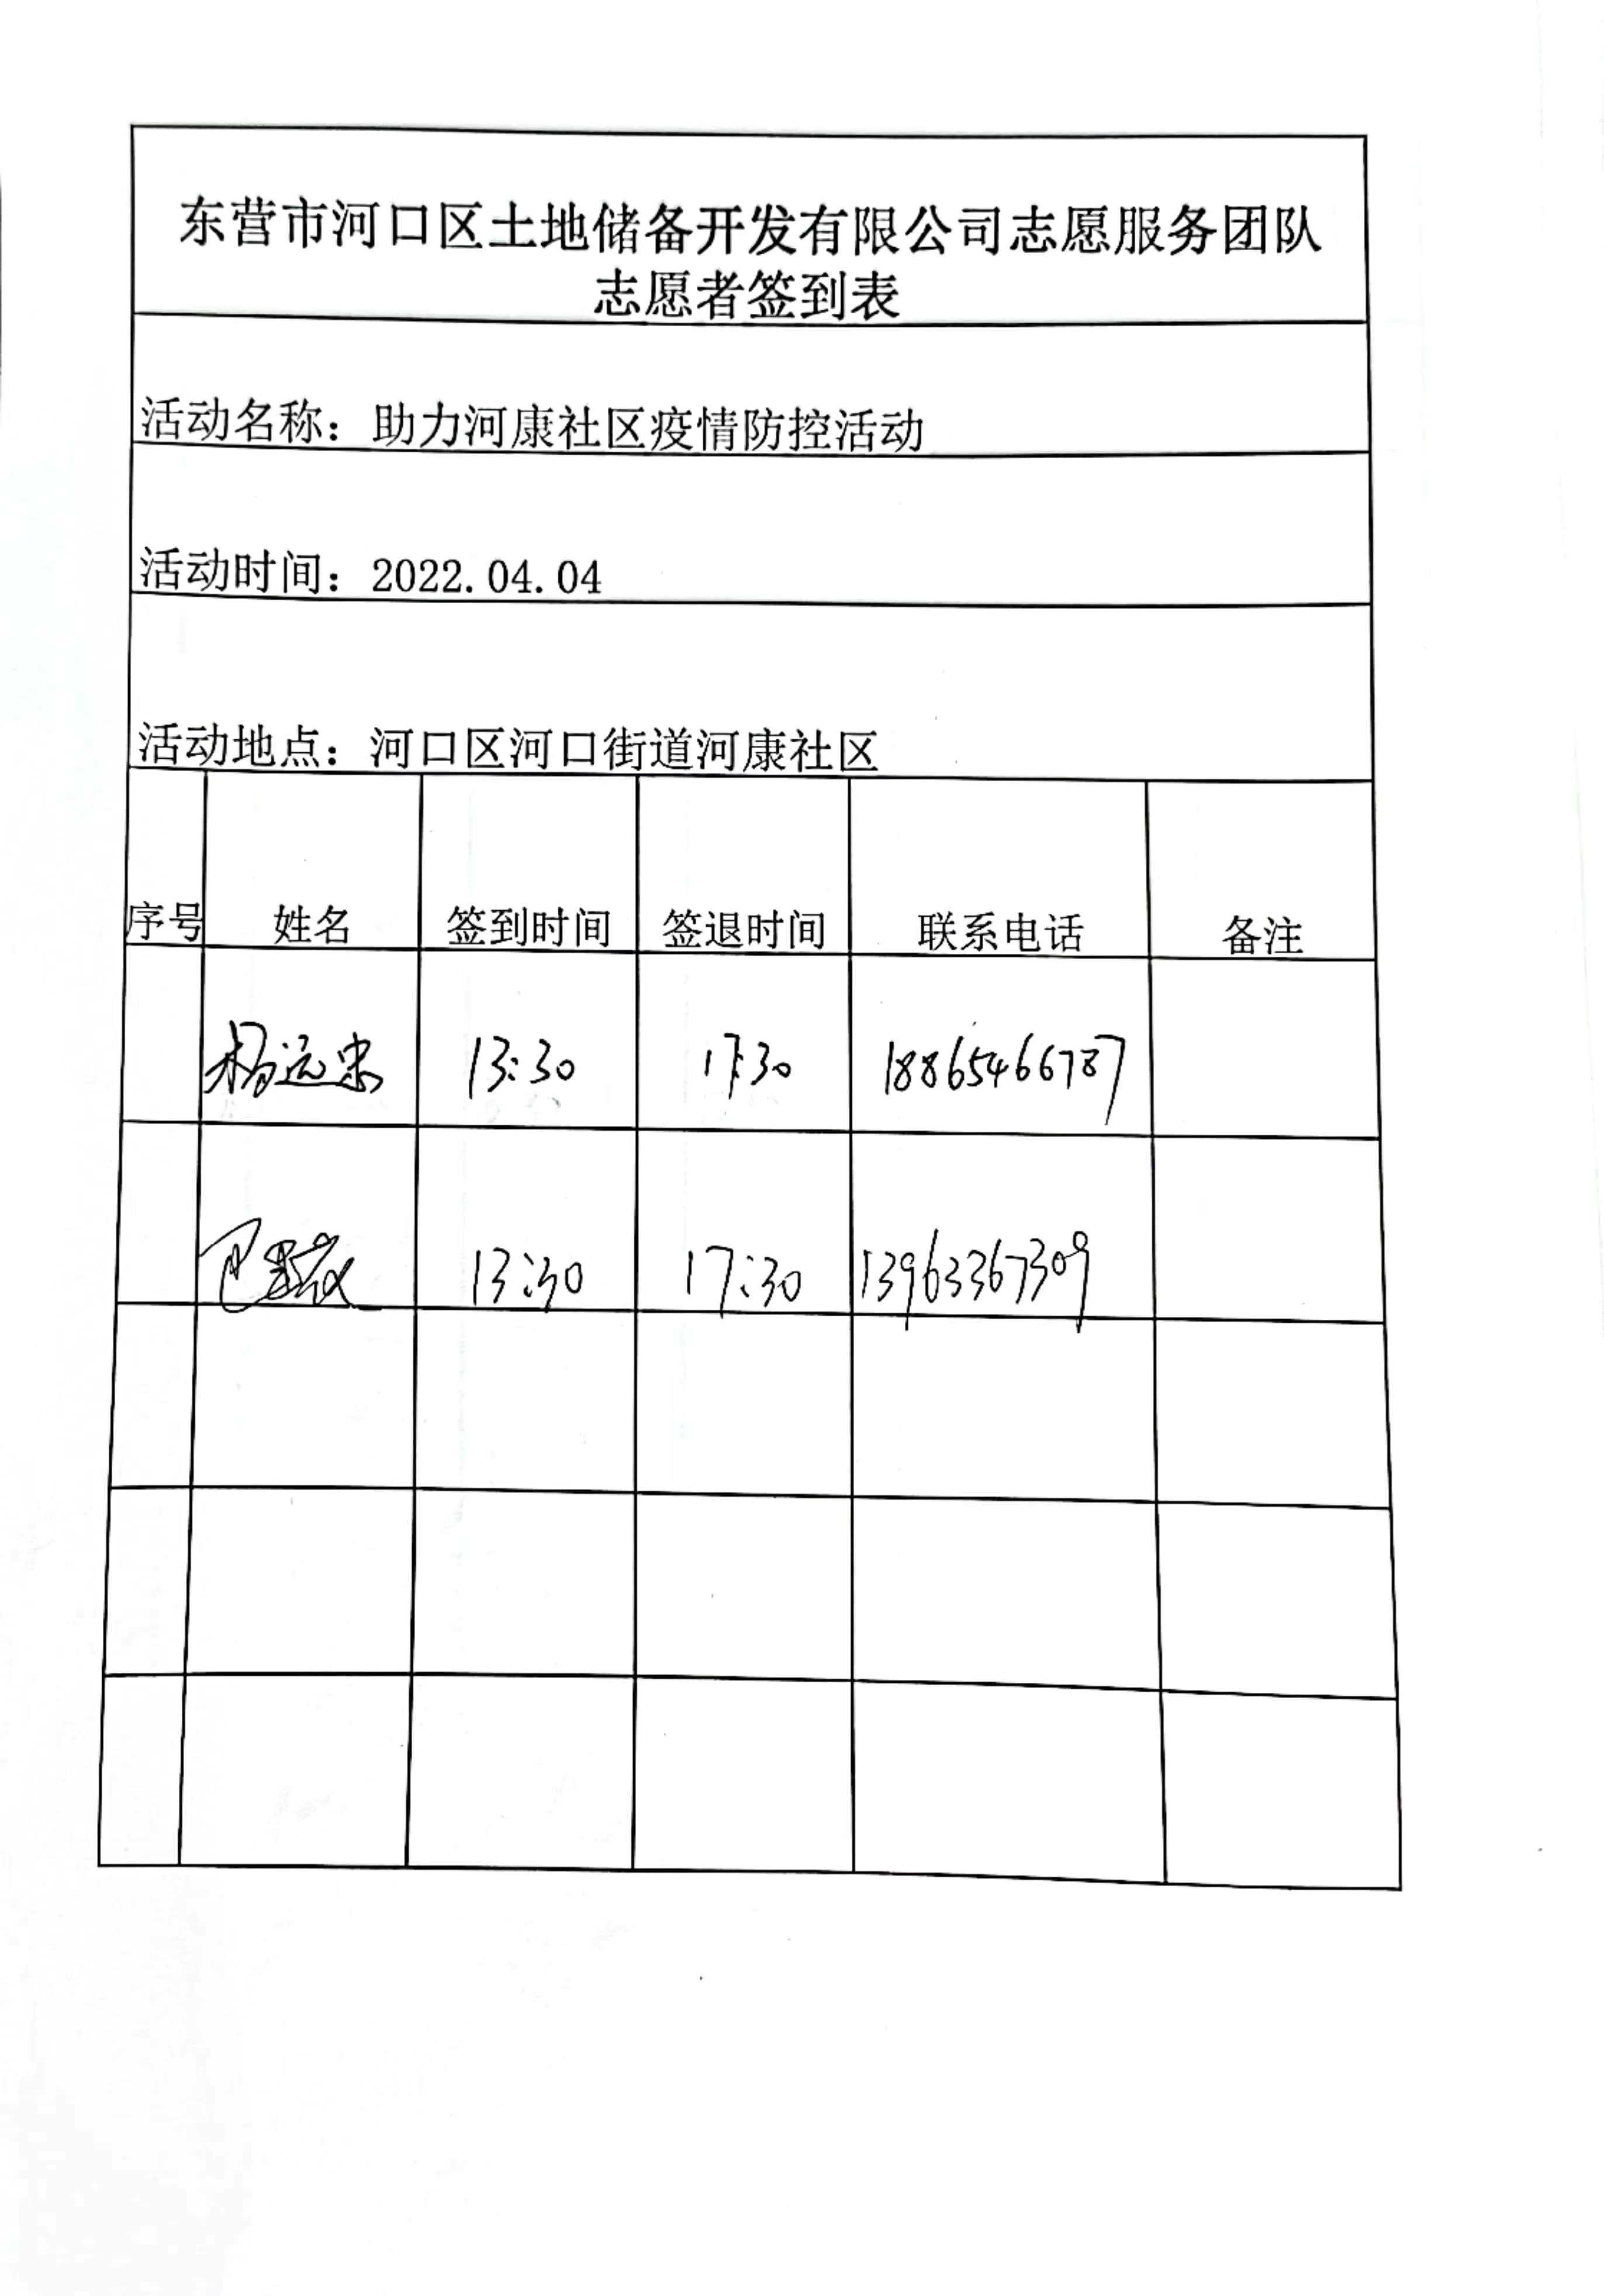 东营市河口区土地储备开发有限公司志愿服务团队
志愿者签到表
活动名称：助力河康社区疫情防控活动
活动时间：2022.04.04
活动地点：河口区河口街道河康社区
序号 姓名 签到时间 签退时间 联系电话 备注
杨远忠 13:30 17:30 18865466787
13:30 17:30 13963367309